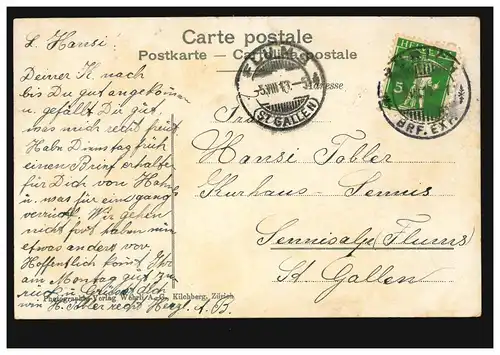 Carte postale
Postkarte - Cartolina postale
Adresse
L. Hansi
Deiner K. nach
bis Du gut angekommen
u. gefällt Du gut,
was mich recht freut
Habe Dienstag früh
einen Brief erhalten
für Dich von
u. was für
Wir gehen
nicht fort haben nun
etwas anders vor.
Hoffentlich komt Ihr
am Montag gut zu-
rück u. Grüsst dich
recht Herzl.
FLUMS
5.VIII.13.
(ST GALLEN)
HELVETIA
5
BRF. EXP.
Hansi Tobler
Kurhaus - Sennis
Sennisalp Flums
St Gallen
Photographie-Verlag Wehrli A.-G., Kilchberg, Zürich